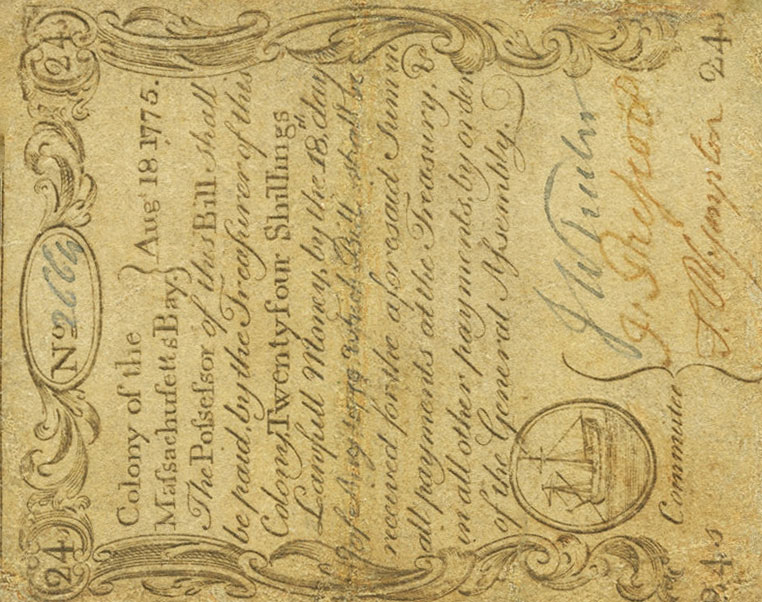 24 24
No 2669
Colony of the
Massachusetts Bay } Augt 18 1775.
The Possessor of this Bill shall
be paid by the Treasurer of this
Colony, Twenty four Shillings
Lawfull Money, by the 18,th day
of Aug which Bill shall be
received for the aforesaid Summ
all payments at the Treasury, &
in all other payments, by order
of the General Assembly.
Committee
24 s 24 s